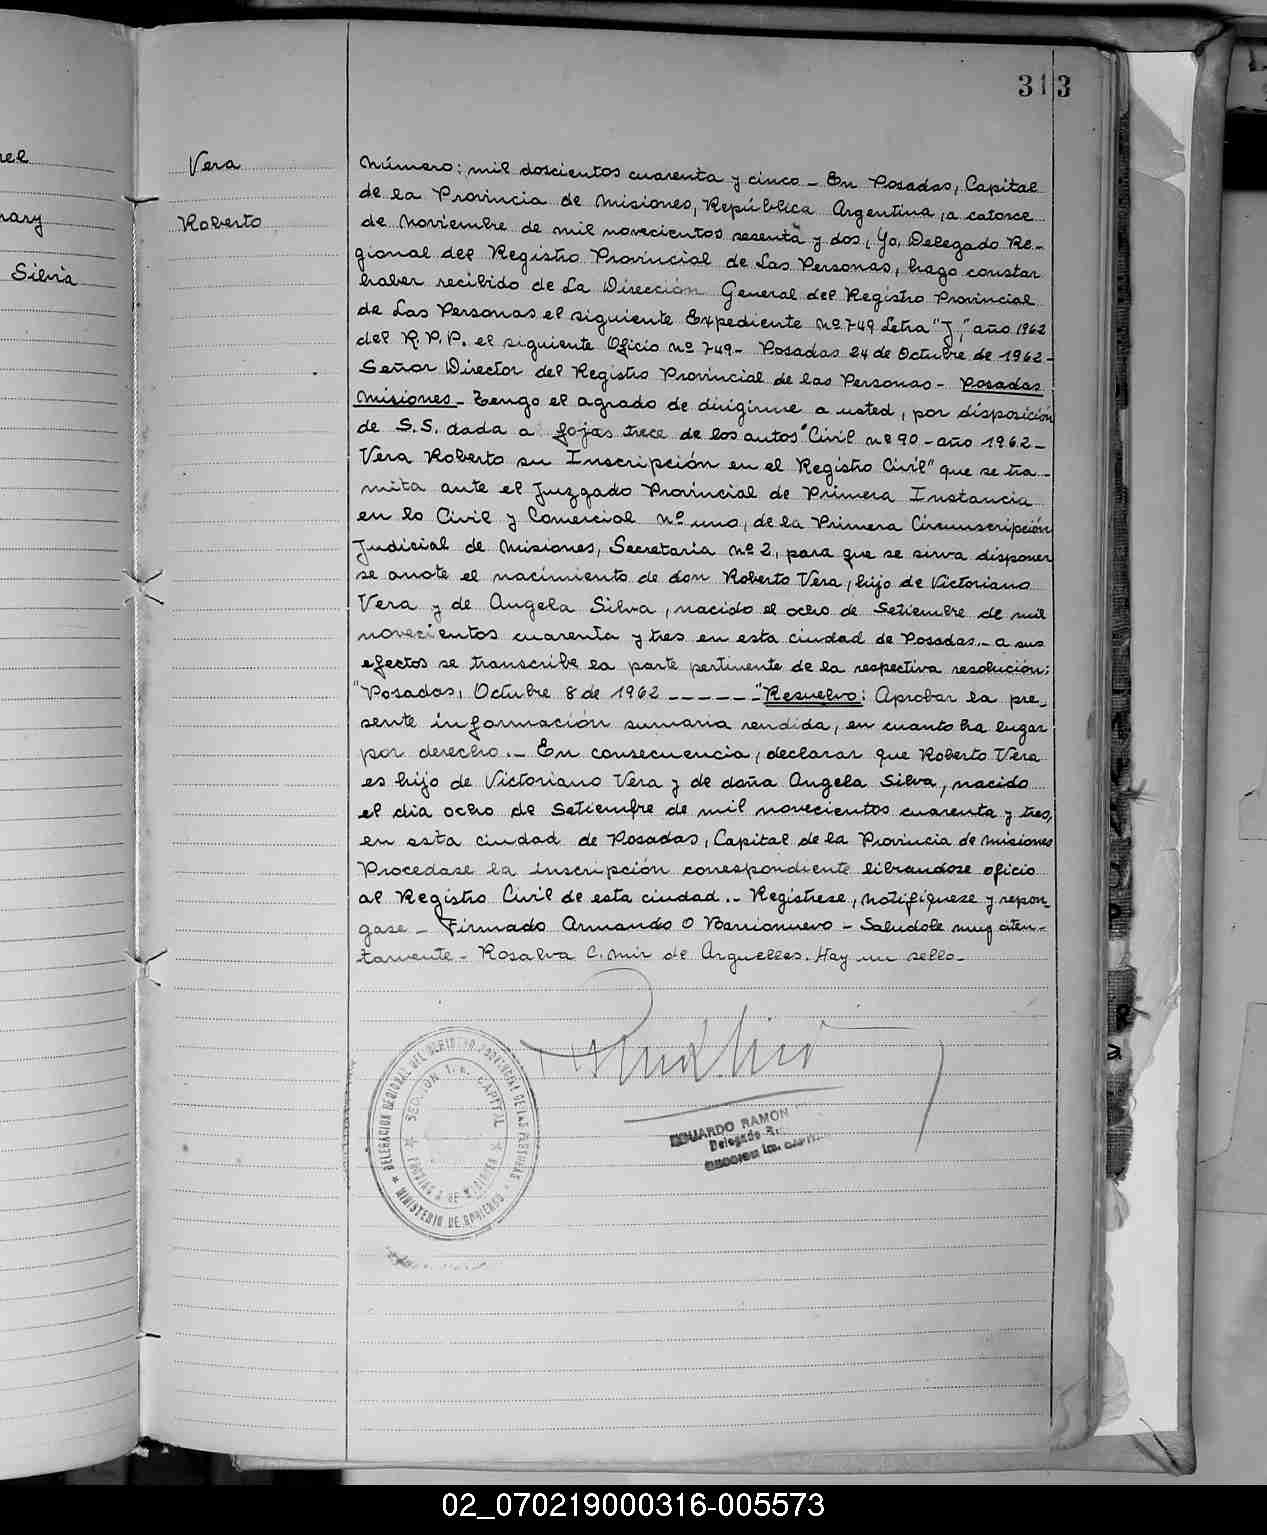 313
nary
Silvia
Vera
Roberto
Número: mil doscientos cuarenta y cinco - En Posadas, Capital
de la Provincia de Misiones, República Argentina, a catorce
de Noviembre de mil novecientos sesenta y dos, Yo, Delegado Re-
gional del Registro Provincial de Las Personas, hago constar
haber recibido de La Dirección General del Registro Provincial
de Las Personas el siguiente Expediente Nº 749 Letra "J," año 1962
del R.P.P. el siguiente Oficio nº 749 - Posadas 24 de Octubre de 1962 -
Señor Director del Registro Provincial de las Personas - Posadas
Misiones - Tengo el agrado de dirigirme a usted, por disposición
de S.S. dada a fojas trece de los autos "Civil nº 90 - año 1962 -
Vera Roberto su Inscripción en el Registro Civil" que se tra-
mita ante el Juzgado Provincial de Primera Instancia
en lo Civil y Comercial Nº uno, de la Primera Circunscripción
Judicial de Misiones, Secretaria Nº 2, para que se sirva disponer
se anote el nacimiento de don Roberto Vera, hijo de Victoriano
Vera y de Angela Silva, nacido el ocho de Setiembre de mil
novecientos cuarenta y tres en esta ciudad de Posadas.- a sus
efectos se transcribe la parte pertinente de la respectiva resolución:
"Posadas, Octubre 8 de 1962 ------ "Resuelvo: Aprobar la pre-
sente información sumaria rendida, en cuanto ha lugar
por derecho.- En consecuencia, declarar que Roberto Vera
es hijo de Victoriano Vera y de doña Angela Silva, nacido
el dia ocho de Setiembre de mil novecientos cuarenta y tres,
en esta ciudad de Posadas, Capital de la Provincia de Misiones
Procedase la inscripción correspondiente librandose oficio
al Registro Civil de esta ciudad.- Registrese, notifíquese y repon-
gase - Firmado Armando O Barrionuevo - Saludole muy aten-
tamente - Rosalva C. Mir de Arguelles. Hay un sello -
DELEGACION REGIONAL DEL REGISTRO PROVINCIAL DE LAS PERSONAS
SECCION 1ra. CAPITAL
PROVINCIA DE MISIONES
MINISTERIO DE GOBIERNO
EDUARDO RAMON
Delegado
Sección 1ra.
02_070219000316-005573